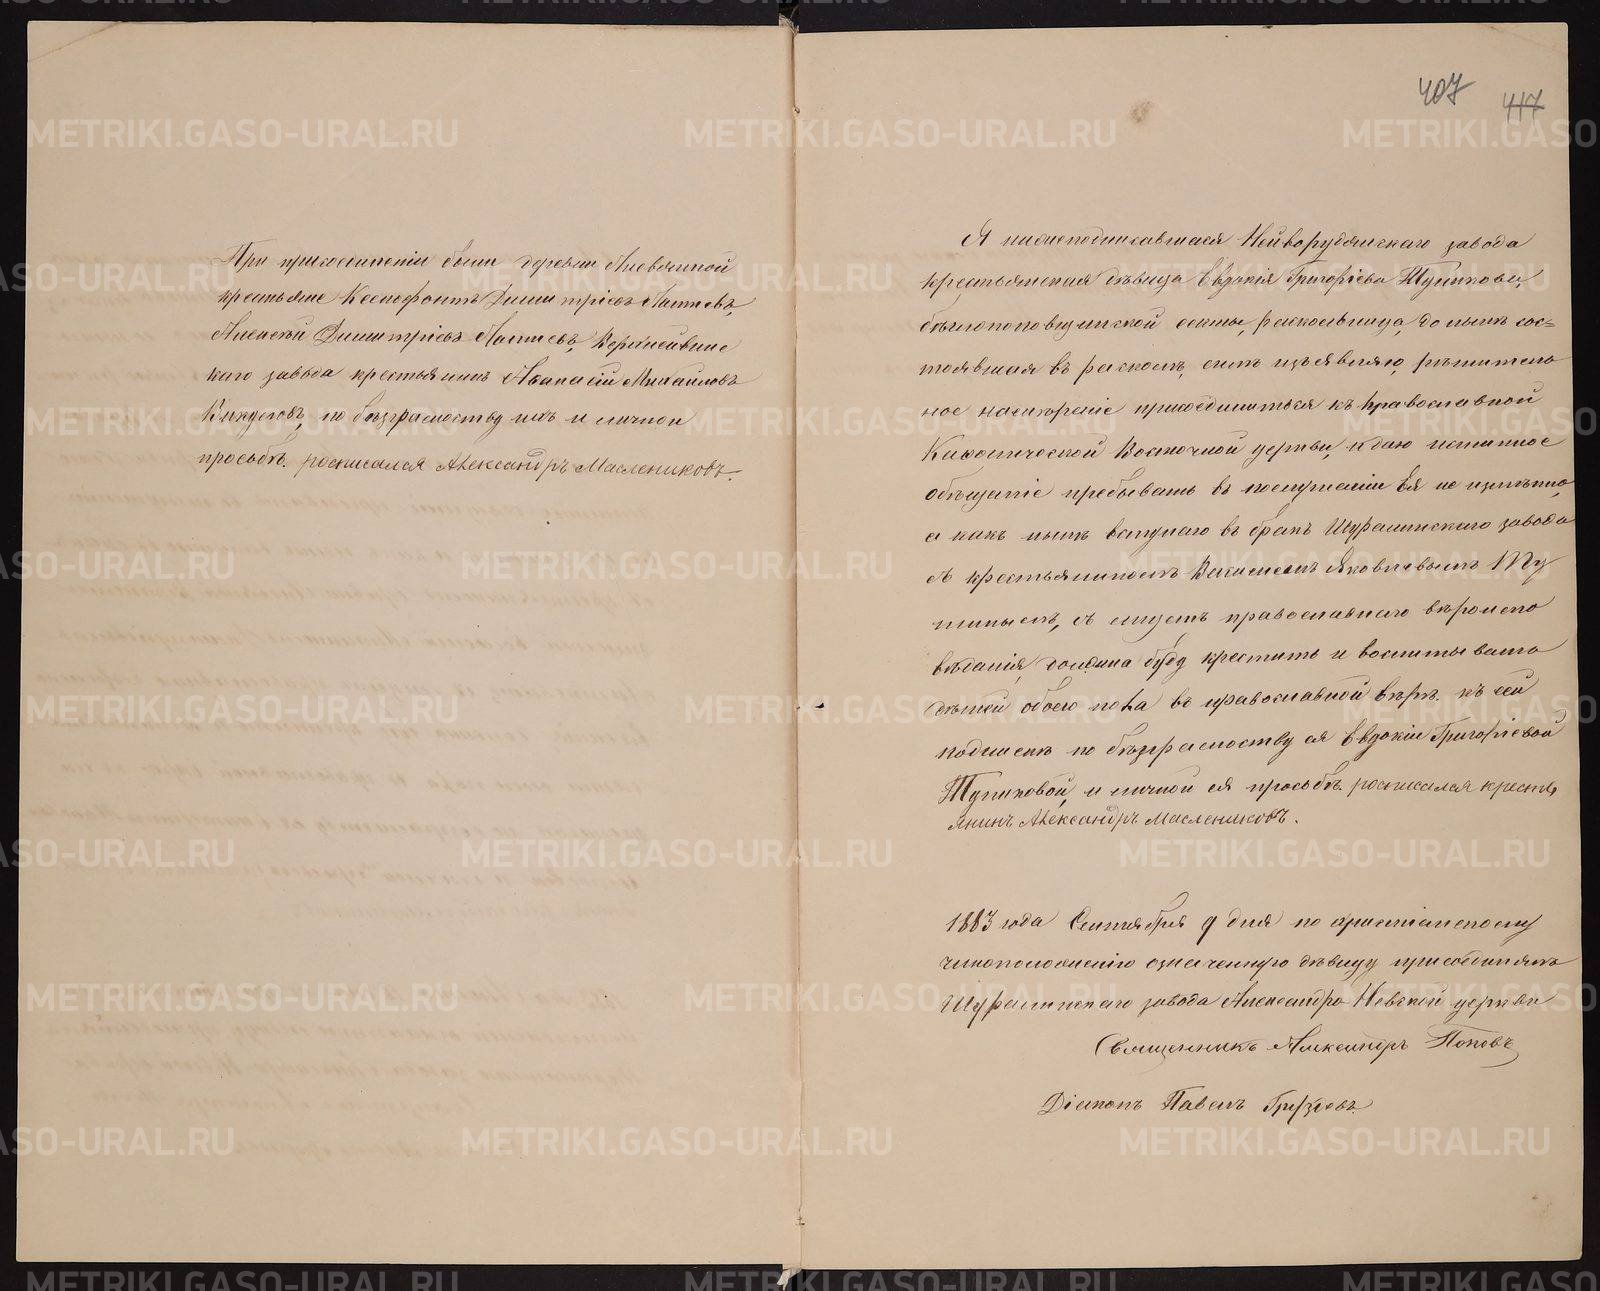 При присоединеніи были деревни Аневдиной
крестьяне Ксенофонтъ Димитріевъ Лаптевъ,
Алексѣй Димитріевъ Лаптевъ, Верхнейвинс
каго завода крестьянинъ Аѳанасій Михайловъ
по безграмотству ихъ и личной
просьбѣ росписался Александръ Маслениковъ.
407 417
Я нижеподписавшаяся Нейворудянскаго завода
крестьянская дѣвица Евдокія Григорьева Тупикова,
бѣглопоповщинской секты, раскольница до нынѣ сос=
тоявшая въ расколѣ, симъ изъявляю рѣшитель
ное намѣреніе присоединиться къ православной
Каѳолической Восточной церкви, и даю истинное
обѣщаніе пребывать въ послушаніи Ея не измѣнно,
а какъ нынѣ вступаю въ бракъ Шуралинскаго завода
съ крестьяниномъ Яковлевымъ
съ лицемъ православнаго вѣроиспо
вѣданія, должна буду крестить и воспитывать
дѣтей обоего пола въ православной вѣрѣ. къ сей
подпискѣ по безграмотству ея Евдокіи Григорьевой
Тупиковой, и личной ея просьбѣ росписался кресть
янинъ Александръ Маслениковъ.
1883 года Сентября 9 дня по христіанскому
чиноположенію означенную дѣвицу присоединялъ
Шуралинскаго завода Александро-Невской церкви
Священникъ Александръ Поповъ
Діаконъ Павелъ
METRIKI.GASO-URAL.RU